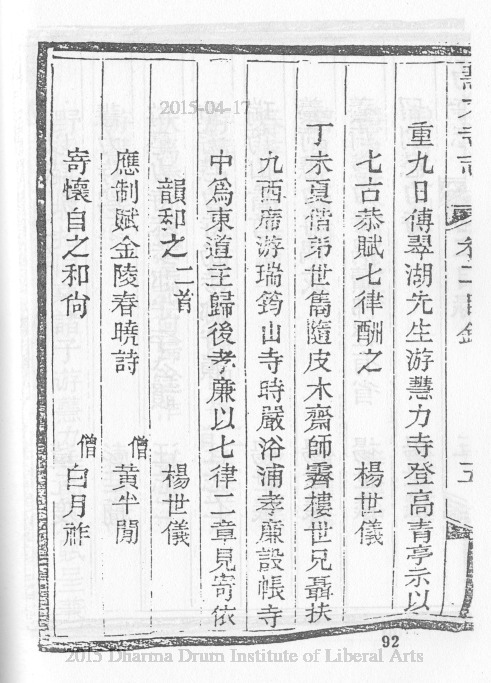 慧力寺志
卷二目錄
五
重九日傅翠湖先生游慧力寺登高青亭示以
七古恭賦七律酬之
楊世儀
丁未夏偕弟世雋隨皮木齋師霽樓世兄聶扶
九西席游瑞筠山寺時嚴浴浦孝廉設帳寺
中為東道主歸後孝廉以七律二章見寄依
韻和之二首
楊世儀
應制賦金陵春曉詩
僧黃半閒
寄懷自之和尙
僧白月祚
92
2015-04-17
2015 Dharma Drum Institute of Liberal Arts